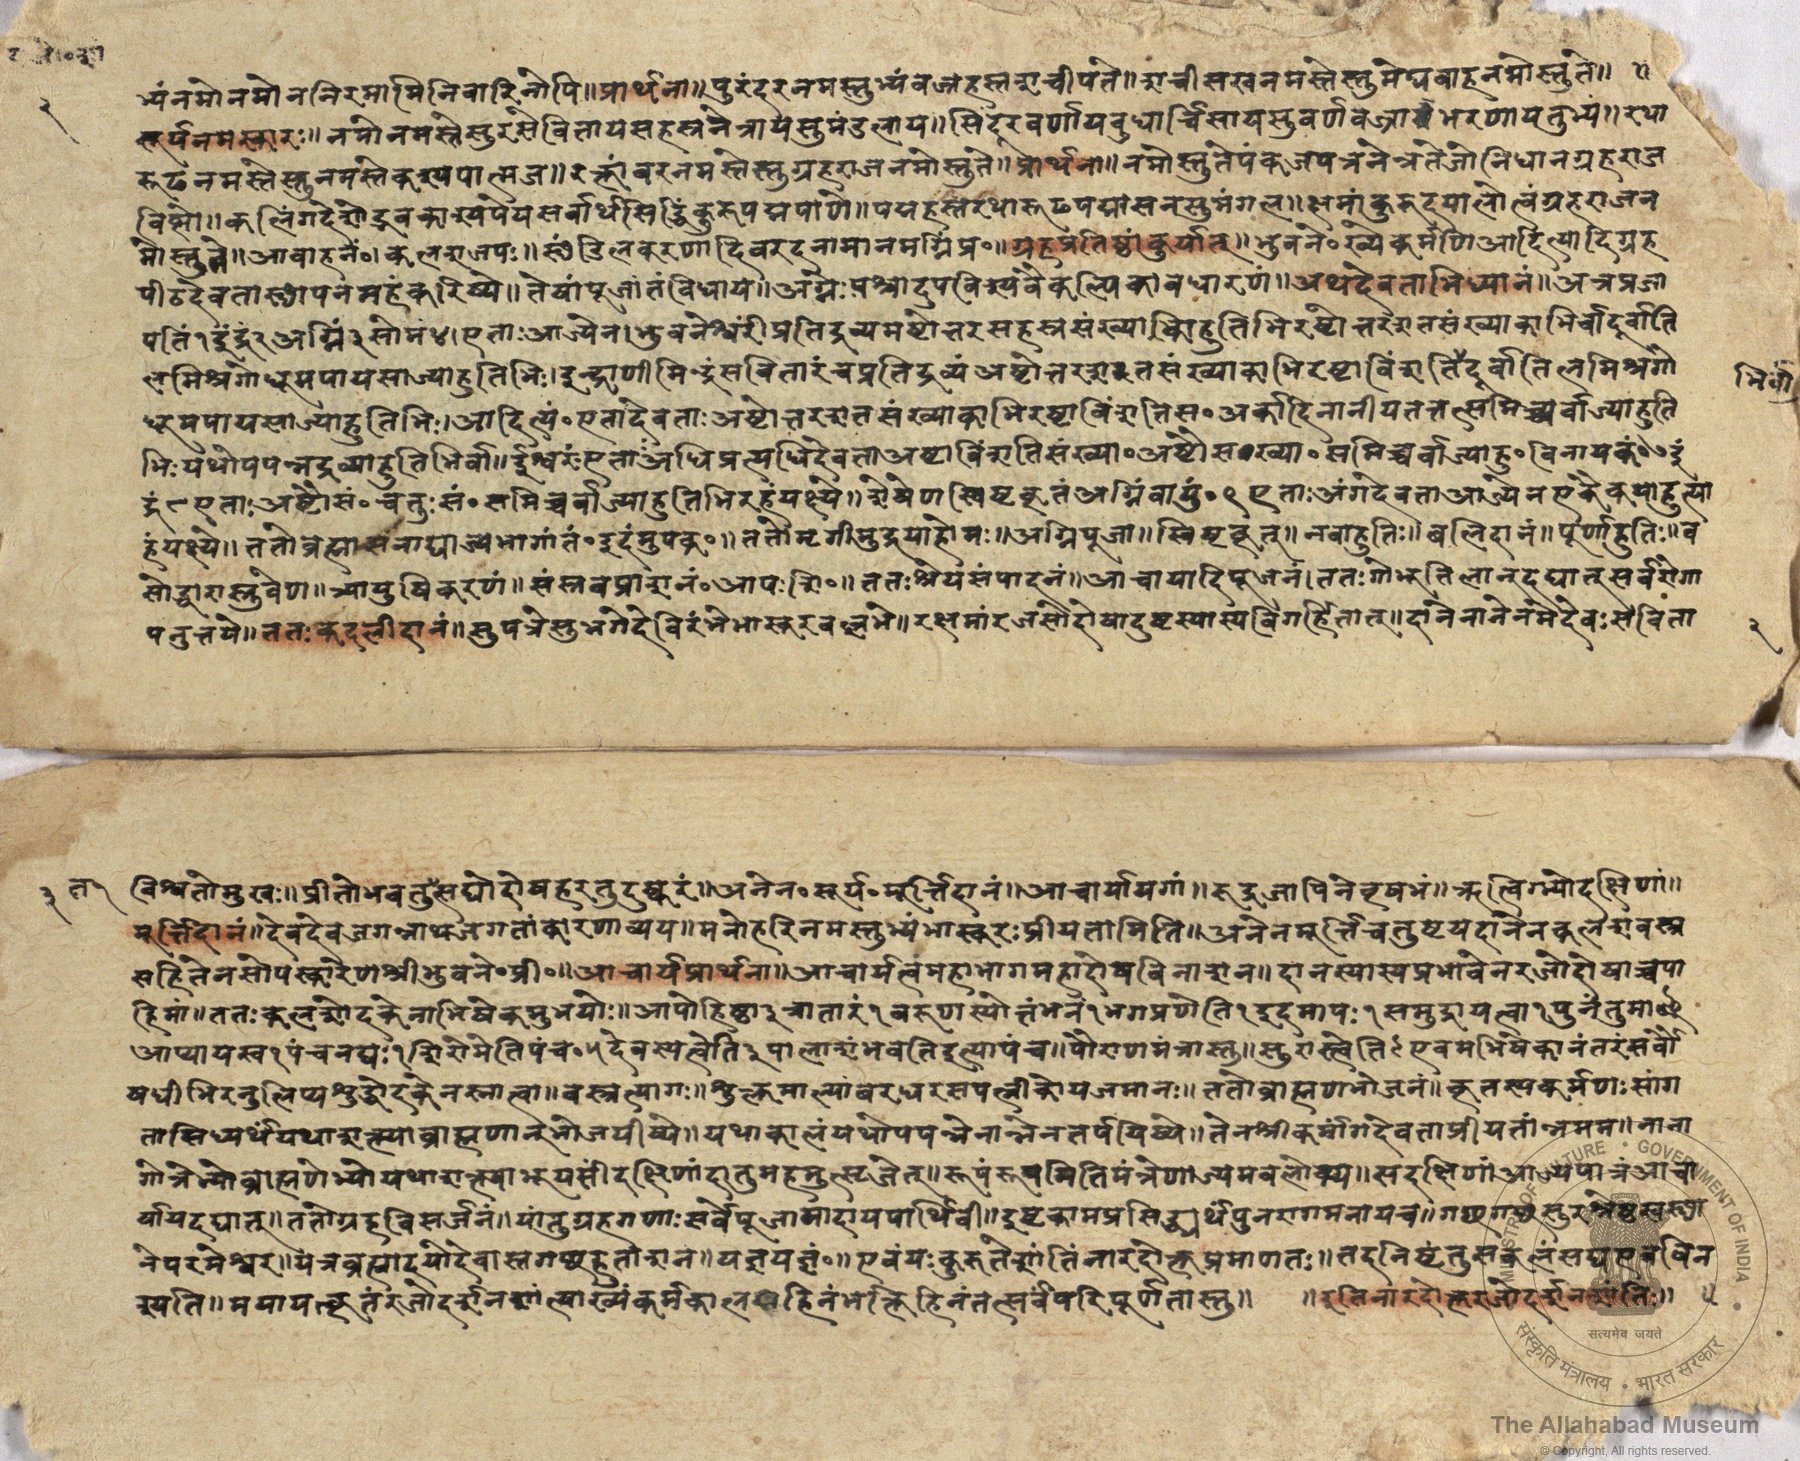 भ्यंनमोनमोननिरमामिनिवारिनोपि॥प्रार्थना॥पुरंदरनमस्तुभ्यंवज्रहस्तशचीपते॥शचीसखनमस्तेस्तुमेघवाहनमोस्तुते॥
२
सूर्यनमस्कारः॥नमोनमस्तेस्तुरसेवितायसहस्रनेत्रायसुमंडलाय॥सिंदूरवर्णायबुधार्चिसायसुवर्णवज्राभरणायतुभ्यं॥रथा
रूढंनमस्तेस्तुनमस्तेकश्यपात्मज॥रक्तांबरनमस्तेस्तुग्रहराजनमोस्तुते॥प्रार्थना॥नमोस्तुतेपंकजपत्रनेत्रतेजोनिधानग्रहराज
विभो॥कलिंगदेशोद्भवकाश्यपेयसर्वार्थसिद्धिंकुरुपद्मपाणे॥पद्महस्तरथारूढपद्मासनसुमंगल॥क्षमांकुरुदयालोत्वंग्रहराजन
मोस्तुते॥आवाहनं॰।कलशजपः॥स्थंडिलकरणादिवरदनामानमग्निंप्र॰॥ग्रहप्रतिष्ठांकुर्यात्॥भुवने॰ख्येकर्मणिआदित्यादिग्रह
पीठदेवतास्थापनंमहंकरिष्ये॥तेषांपूजांतंविधाय॥अग्नेःपश्चादुपविश्यवैकल्पिकावधारणं॥अथदेवताभिध्यानं॥अत्रप्रजा
पतिं१इंद्रं२अग्निं३सोमं४।एताःआज्येन।भुवनेश्वरींप्रतिद्रव्यमष्टोत्तरसहस्रसंख्याकाहुतिभिरष्टोत्तरशतसंख्याकाभिर्वादूर्वाति
लमिश्रगोधूमपायसाज्याहुतिभिः।इन्द्राणीमिन्द्रंसवितारंचप्रतिद्रव्यंअष्टोत्तरशतसंख्याकाभिरष्टाविंशतिदूर्वातिलमिश्रगो
भिर्वा
धूमपायसाज्याहुतिभिः।आदित्यं॰एतादेवताःअष्टोत्तरशतसंख्याकाभिरष्टाविंशतिस॰अर्कादिनानीयतत्तत्समिच्चर्वाज्याहुति
भिःयथोपपन्नद्रव्याहुतिभिर्वा॥ईश्वरंएताअधिप्रत्यधिदेवताअष्टाविंशतिसंख्या॰अष्टौसंख्या॰समिच्चर्वाज्याहु॰विनायकं॰७इं
द्रं८एताःअष्टौसं॰चतुःसं॰समिच्चर्वाज्याहुतिभिरहंयक्ष्ये॥शेषेणस्विष्टकृतंअग्निंवायुं॰९एताःअंगदेवताआज्येनएकैकयाहुत्या
हंयक्ष्ये॥ततोब्रह्मासनाद्याज्यभागांतं॰इदंमुपक्र॰॥ततोमृगीमुद्रयाहोमः॥अग्निपूजा॥स्विष्टकृत्॥नवाहुतिः॥बलिदानं॥पूर्णाहुतिः॥व
सोर्द्धारास्तुवेण॥त्र्यायुषिकरणं॥संस्रवप्राशनं॰आपःशि॰॥ततःश्रेयसंपादनं॥आचार्यादिपूजनं।ततःगोभूतिलान्दद्यात्सर्वरोगा
पनुत्तये॥ततःकदलीदानं॥सुपत्रेसुभगेदेविरंभेभास्करवल्लभे॥रक्षमांरजसोदोषादुष्टस्यास्यविगर्हितात्॥दानेनानेनमेदेवःसविता
२
३
विश्वतोमुखः॥प्रीतोभवतुसद्योदोषहरतुदुष्करं॥अनेन॰सूर्य॰मूर्त्तिदानं॥आचार्यायगां॥रुद्रजापिनेवृषभं॥ऋत्विग्भ्योदक्षिणां॥
मूर्त्तिदानं॥देवदेवजगन्नाथजगतांकारणाव्यय॥मनोहरिनमस्तुभ्यंभास्करःप्रीयतामिति॥अनेनमूर्त्तिचतुष्टयदानेनकुलशवस्त्र
सहितेनसोपस्कारेणश्रीभुवने॰प्री॰॥आचार्यप्रार्थना॥आचार्यत्वंमहाभागमहादोषविनाशन॥दानस्यास्यप्रभावेनरजोदोषाच्चपा
हिमां॥ततःकलशोदकेनाभिषेकमुभयोः॥आपोहिष्ठा३त्रातारं१वरुणस्योत्तंभनं१भगप्रणेति१इदमापः१समुद्रायत्वा१पुनंतुमा
आप्यायस्व१पंचनद्यः१शिरोमेतिपंच॰५देवस्यत्वेति३पालाशंभवतिइत्यापंच॥पौराणमंत्रास्तु॥सुरास्त्वेतिएवमभिषेकानंतरंसर्वौ
षधीभिरनुलिप्यशुद्धोदकेनस्नात्वा॥वस्त्रत्यागः॥शुक्लमाल्यांबरधरसपत्नीकोयजमानः॥ततोब्राह्मणभोजनं॥कृतस्यकर्मणःसांग
तासिध्यर्थंयथाशक्त्याब्राह्मणान्भोजयीष्ये॥यथाकालंयथोपपन्नेनान्नेनतर्पयिष्ये॥तेनश्रीकर्मांगदेवताप्रीयतांन्नमम॥नाना
गोत्रेभ्योब्राह्मणेभ्योयथाशक्त्याभूयसींदक्षिणांदातुमहमुत्सृजेत्॥रूपंरूपमितिमंत्रेणाज्यमवलोक्य॥सदक्षिणांआज्यपात्रंआचा
र्यायदद्यात्॥ततोग्रहविसर्जनं॥यांतुग्रहगणाःसर्वेपूजामादायपार्थिवी॥इष्टकामप्रसिद्ध्यर्थंपुनरागमनायच॥गच्छगच्छसुरश्रेष्ठस्वस्था
नेपरमेश्वर॥यत्रब्रह्मादयोदेवास्तगच्छहुताशन॥यज्ञयज्ञं॰॥एवंयःकुरुतेशांतिंनारदोक्तप्रमाणतः॥तदनिष्टंतुसकलंसद्यएवविन
श्यति॥मयायत्कृतंरजोदर्शनशांत्याख्यंकर्मकालहिनंभक्तिहिनंतत्सर्वंपरिपूर्णतास्तु॥ ॥इतिनारदोक्तरजोदर्शनशांतिः॥
MINISTRY OF CULTURE • GOVERNMENT OF INDIA
सत्यमेव जयते
संस्कृति मंत्रालय • भारत सरकार
The Allahabad Museum
© Copyright, All rights reserved.